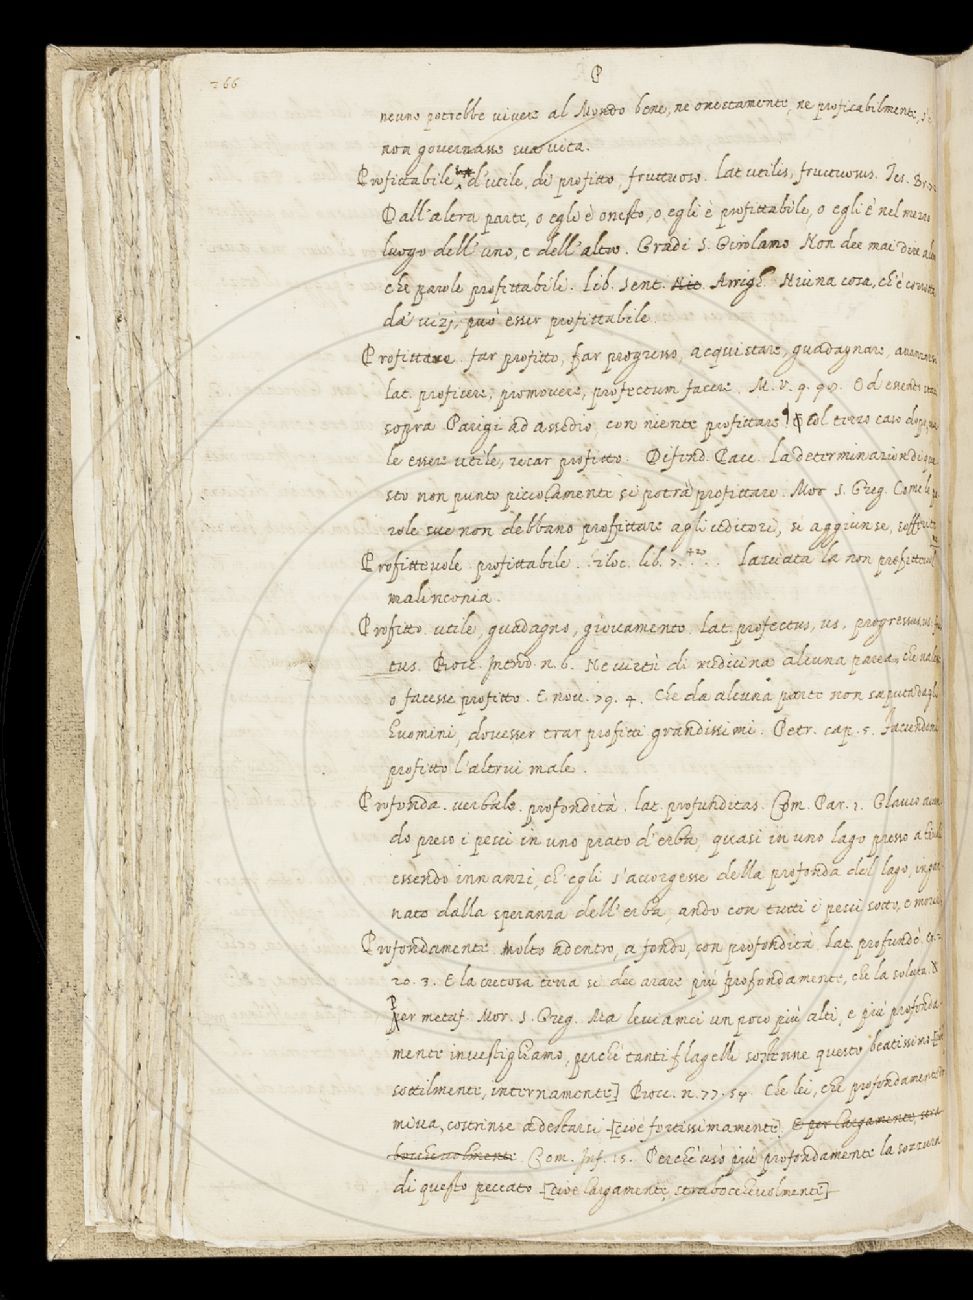 266
P
neuno potrebbe vivere al Mondo bene, ne onestamente, ne proficabilmente, s'e
non governasse sua vita.
Profittabile d'utile, di profitto, fruttuoso. Lat. utilis, fructuosus. Tes. Br.
Dall'altra parte, o egli è onesto, o egli è profittabile, o egli è nel mezzo
luogo dell'uno, e dell'altro. Gradi S. Girolamo Non dee mai dire
che parole profittabili. Lib. Sent. Arrigh. Niuna cosa, ch'è
da' vizj, può esser profittabile.
Profittare. far profitto, far progresso, acquistare, guadagnare,
lat. proficere, promovere, profectum facere. M. V. 9. 97. Ed essendo
sopra Parigi ad assedio, con niente profittare col terzo caso dopo,
le essere utile, recar profitto. Difend. Pace. La determinazion di que
sto non punto picciolamente si potrà profittare. Mor. S. Greg. Come le pa
role sue non debbano profittare agli uditori, si aggiunse,
Profittevole. profittabile. Filoc. lib. 7. 42. Lasciata la non profittevole
malinconia.
Profitto. utile, guadagno, giovamento. Lat. profectus, us, progressus, us,
tus. Bocc. Introd. n. 6. Ne virtù di medicina alcuna parea, che
o facesse profitto. E nov. 79. 4. Che da alcuna parte non saputa dagli
huomini, dovesser trar profitti grandissimi. Petr. cap. 5. Facendomi
profitto l'altrui male.
Profonda. verbale. profondità. lat. profunditas. Com. Par. 1. Glauco aven
do preso i pesci in uno prato d'erba, quasi in uno lago presso a
essendo innanzi, ch'egli s'accorgesse della profonda del lago, ingan
nato dalla speranza dell'erba, andò con tutti i pesci sotto, e
Profondamente. Molto adentro, a fondo, con profondità. Lat. profundè. Cr.
20. 3. E la cretosa terra si dee arare più profondamente, che la soluta.
Per metaf. Mor. S. Greg. Ma leviamci un poco più alti, e più profonda
mente investighiamo, perchè tanti flagelli sostenne questo beatissimo
sottilmente, internamente] Bocc. n. 77. 54. Che lei, che profondamente
miva, costrinse a destarsi [cioè fortissimamente] E per largamente, stra
bocchevolmente. Com. Inf. 15. Perchè usò più profondamente la sozzura
di questo peccato [cioè largamente, strabocchevolmente]